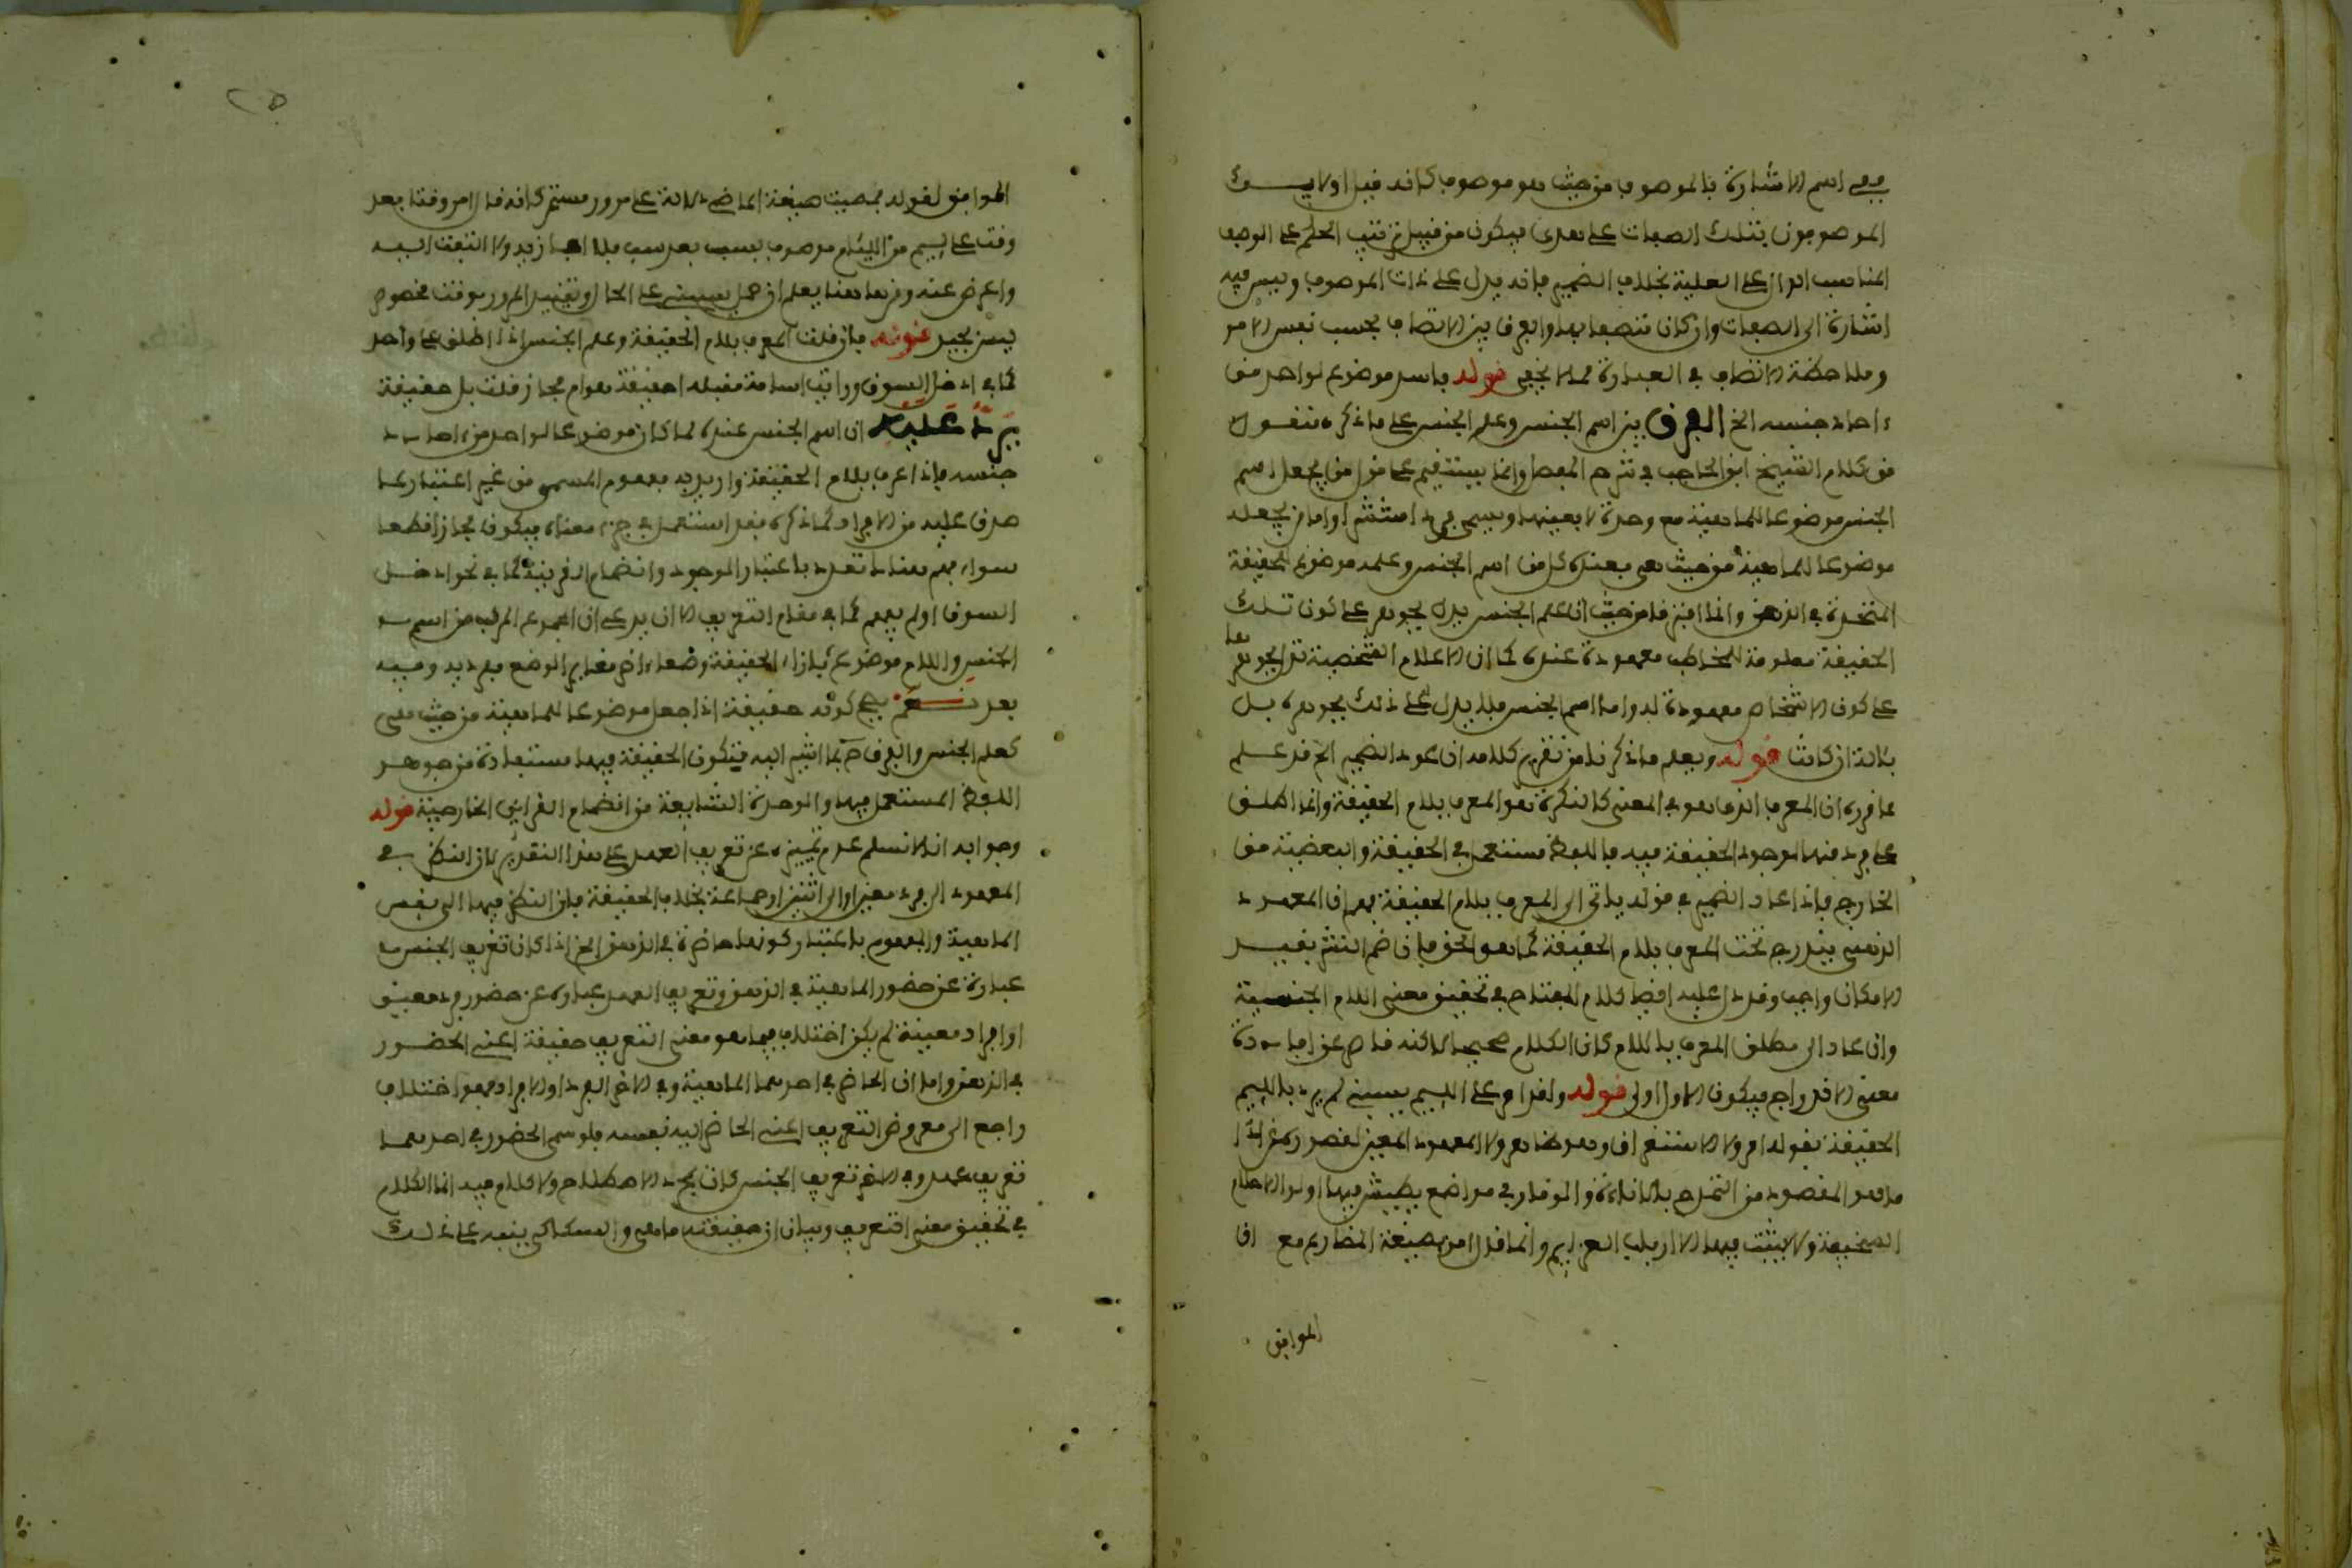 ففي اسم الاشارة بالموصوف من حيث هو موصوف كانه قيل اولايك
الموصوفون بتلك الصفات على هدى فيكون من قبيل ترتيب الحكم على الوصف
المناسب الدال على العلية بخلاف الضمير فانه يدل على ذات الموصوف وليس فيه
اشارة الى الصفات وان كان متصفا بها والفرق بين الاتصاف بحسب نفس الامر
وملاحظة الاتصاف في العبارة مما لا يخفى قوله فاسد موضوع لواحد من
ءاحاد جنسه الخ الفرق بين اسم الجنس وعلم الجنس على ما ذكره منقول
من كلام الشيخ ابن الحاجب في شرح المفصل وانما يستقيم على قول من يجعل اسم
الجنس موضوعا للماهية مع وحدة لا بعينها ويسمى فردا منتشرا واما من يجعله
موضوعا للماهية من حيث هي فعنده كل من اسم الجنس وعلمه موضوع للحقيقة
المتحدة في الذهن وانما افترقا من حيث ان علم الجنس يدل بجوهره على كون تلك
الحقيقة معلومة للمخاطب معهودة عنده كما ان الاعلام الشخصية تدل بجوهرها
على كون الاشخاص معهودة له واما اسم الجنس فلا يدل على ذلك بجوهره بل
بئالة ان كانت قوله ويعلم ما ذكرنا من تقرير كلامه ان عود الضمير الخ قد علم
مما قرره ان المعرف الذي هو في المعنى كالنكرة هو المعرف بلام الحقيقة وانما اطلق
على فرد منها لوجود الحقيقة فيه فاللفظ مستعمل في الحقيقة والبعضية من
الخارج فاذا عاد الضمير في قوله ياتي الى المعرف بلام الحقيقة فهم ان المعهود
الذهني يندرج تحت المعرف بلام الحقيقة كما هو الحق فان ضم النشر بقيد
الامكان واجب وقد دل عليه ايضا كلام المفتاح في تحقيق معنى اللام الجنسية
وان عاد الى مطلق المعرف باللام كان الكلام صحيحا لاكنه قاصر عن افادة
معنى الاندراج فيكون الاول اولى قوله ولقد امر على اللييم يسبني لم يرد باللييم
الحقيقة بقوله امر ولا الاستغراق وهو ظاهر ولا المعهود المعين لقصور
ما هو المقصود من التمدح بالاناءة والوقار في مواضع يطيش فيها اولوا الاحلام
السخيفة ولا يثبت فيها الا ارباب العزايم وانما قال امر بصيغة المضارع مع ان
الموافق
الموافق لقوله فمضيت صيغة الماضي دلالة على مرور مستمر كانه قال امر وقتا بعد
وقت على لييم من اللئام موصوف بسب بعد سب فلا اجازيه ولا التفت اليه
واعرض عنه ومن هاهنا يعلم ان حمل يسبني على الحال وتقييد المرور بوقت مخصوص
ليس بجيد قوله فان قلت المعرف بلام الحقيقة وعلم الجنس اذا اطلق على واحد
كما في ادخل السوق ورايت اسامة مقبلة احقيقة هو ام مجاز قلت بل حقيقة
يرد عليه ان اسم الجنس عنده لما كان موضوعا لواحد من ءاحاد
جنسه فاذا عرف بلام الحقيقة واريد به مفهوم المسمى من غير اعتبار لما
صدق عليه من الافراد كما ذكره فقد استعمل في جزء معناه فيكون مجازا قطعا
سواء فهم هناك تعدد باعتبار الوجود وانضمام القرينة كما في نحو ادخل
السوق اولم يفهم كما في مقام التعريف الا ان يدعى ان المجموع المركب من اسم
الجنس واللام موضوع بازاء الحقيقة وضعا ءاخر مغاير الوضع مفرديه وفيه
بعد نعم يصح كونه حقيقة اذا جعل موضوعا للماهية من حيث هي
كعلم الجنس والفرق ح بما اشير اليه فتكون الحقيقة فيهما مستفادة من جوهر
اللفظ المستعمل فيها والوحدة الشايعة من انضمام القراين الخارجية قوله
وجوابه انا لا نسلم عدم تمييزه عن تعريف العهد على هذا التقدير لان النظر في
المعهود الى فرد معين او الى اثنين او جماعة بخلاف الحقيقة فان النظر فيها الى نفس
الماهية والمفهوم باعتبار كونها حاضرة في الذهن الخ اذا كان تعريف الجنس
عبارة عن حضور الماهية في الذهن وتعريف العهد عبارة عن حضور فرد معين
او افراد معينة لم يكن اختلاف فيما هو معنى التعريف حقيقة اعني الحضور
في الذهن واما ان الحاضر في احدهما الماهية وفي الاخر الفرد او الافراد فهو اختلاف
راجع الى معروض التعريف اعني الحاضر اليه نفسه فلو سمى الحضور في احدهما
تعريف عهد وفي الاخر تعريف الجنس كان مجرد اصطلاح ولا كلام فيه انما الكلام
في تحقيق معنى التعريف وبيان ان حقيقته ما هي والسكاكي ينبه على ذلك